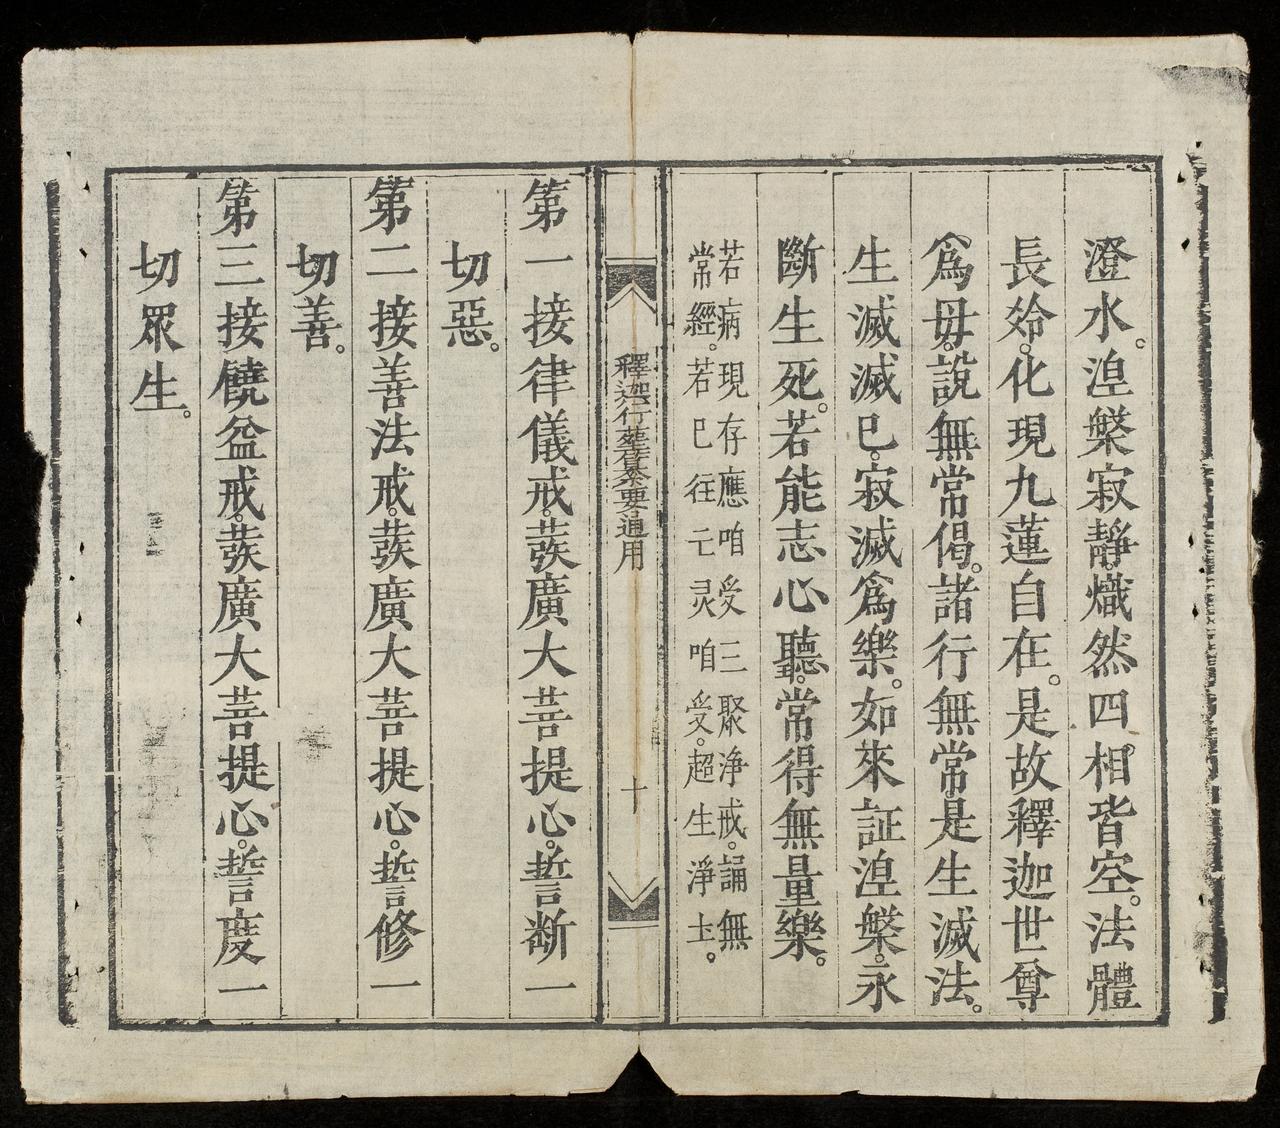 澄水。湼槃寂靜。熾然四相皆空。法體
長㱓。化現九蓮自在。是故釋迦世尊
爲毋。說無常偈。諸行無常。是生滅法。
生滅滅已。寂滅爲樂。如來証湼槃。永
斷生死。若能志心聽。常得無量樂。
若病現存應咱受三聚淨戒。誦無
常經。若已往亡灵咱受。超生淨土。
釋迦行 要通用
十
第一接律儀戒。蕟廣大菩提心。誓断一
切惡。
第二接善法戒。蕟廣大菩提心。誓修一
切善。
第三接饒益戒。蕟廣大菩提心。誓度一
切眾生。